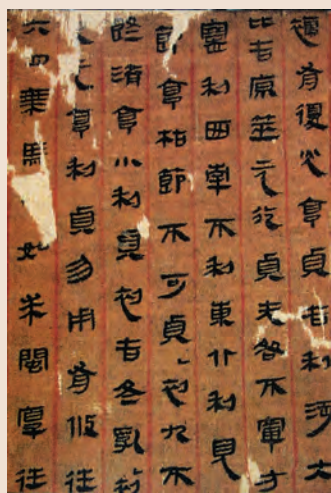 襦有復光亨貞吉利涉大
比吉原筮元永貞无咎不寧方
蹇利西南不利東北利見
節亨枯節不可貞初九不
既濟亨小利貞初吉冬乳初
元亨利貞勿用有攸往
六四乘馬如求閩厚往